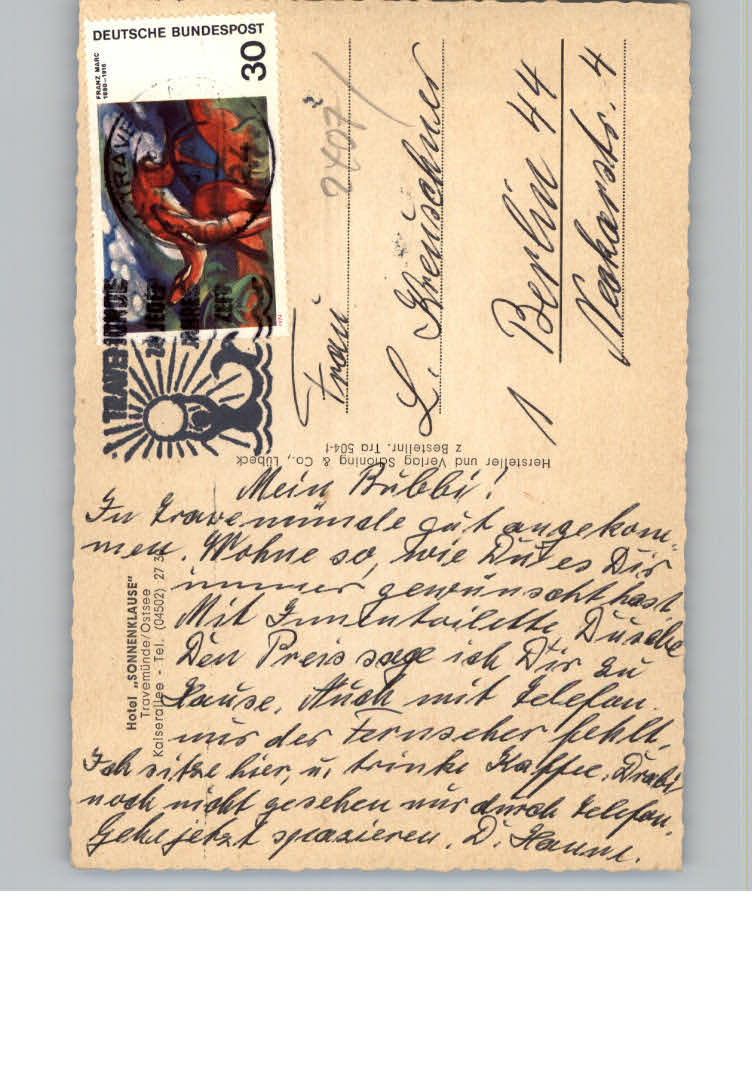 DEUTSCHE BUNDESPOST
30
FRANZ MARC
1880–1916
1974
TRAVEMÜNDE
ZU JEDER
JAHRES
ZEIT
TRAVE
2407
Frau
L. Kreuschner
1 Berlin 44
Neckarstr. 4
Hersteller und Verlag Schöning & Co., Lübeck
z Bestellnr. Tra 504-f
Hotel „SONNENKLAUSE"
Travemünde/Ostsee
Kaiserallee - Tel. (04502) 27 3
Mein Bubbi!
In Travemünde gut angekom-
men. Wohne so, wie Du es Dir
immer gewünscht hast
Mit Innentoilette, Dusche
Den Preis sage ich Dir zu
Hause. Auch mit Telefon.
nur der Fernseher fehlt.
Ich sitze hier, u. trinke Kaffee.
noch nicht gesehen nur durch Telefon.
Gehe jetzt spazieren. D. Hanne.